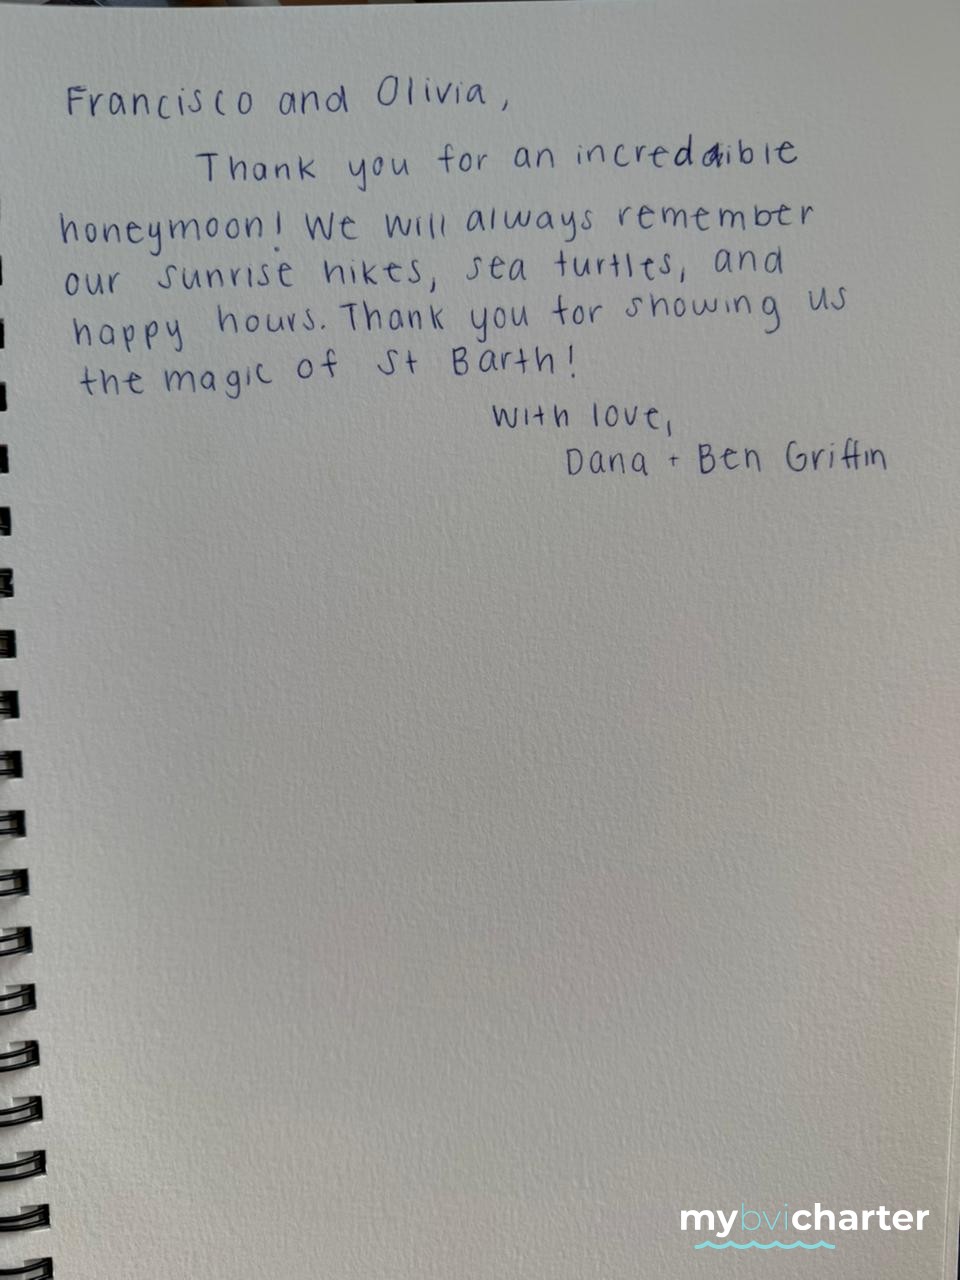 Francisco and Olivia,
Thank you for an incredible
honeymoon! We will always remember
our sunrise hikes, sea turtles, and
happy hours. Thank you for showing us
the magic of St Barth!
With love,
Dana + Ben Griffin
mybvicharter